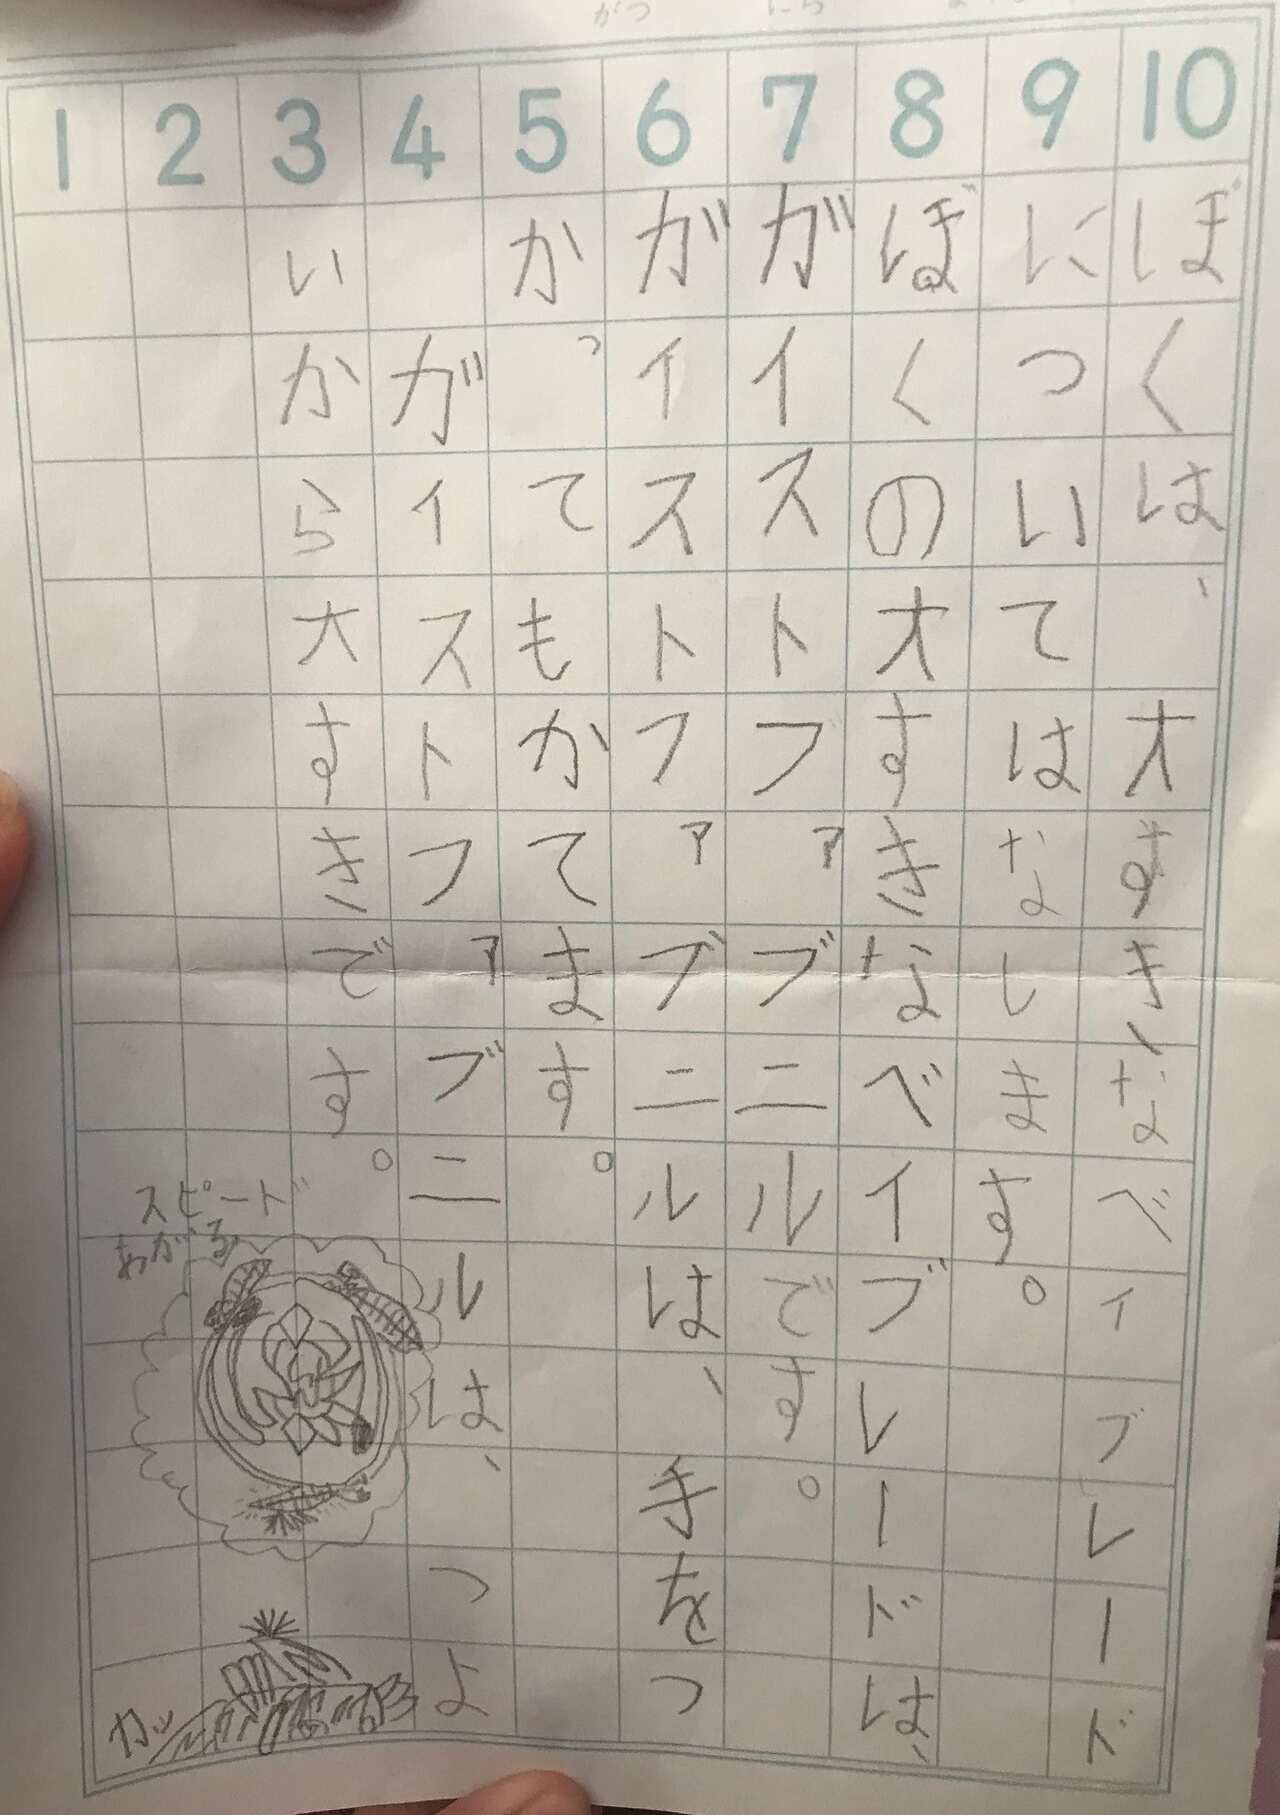 1 2 3 4 5 6 7 8 9 10
ぼくは、大すきなベイブレード
についてはなします。
ぼくの大すきなベイブレードは、
ガイストファブニルです。
ガイストファブニルは、手をつ
かってもかてます。
ガイストファブニルは、つよ
いから大すきです。
スピード
あがる
カッ